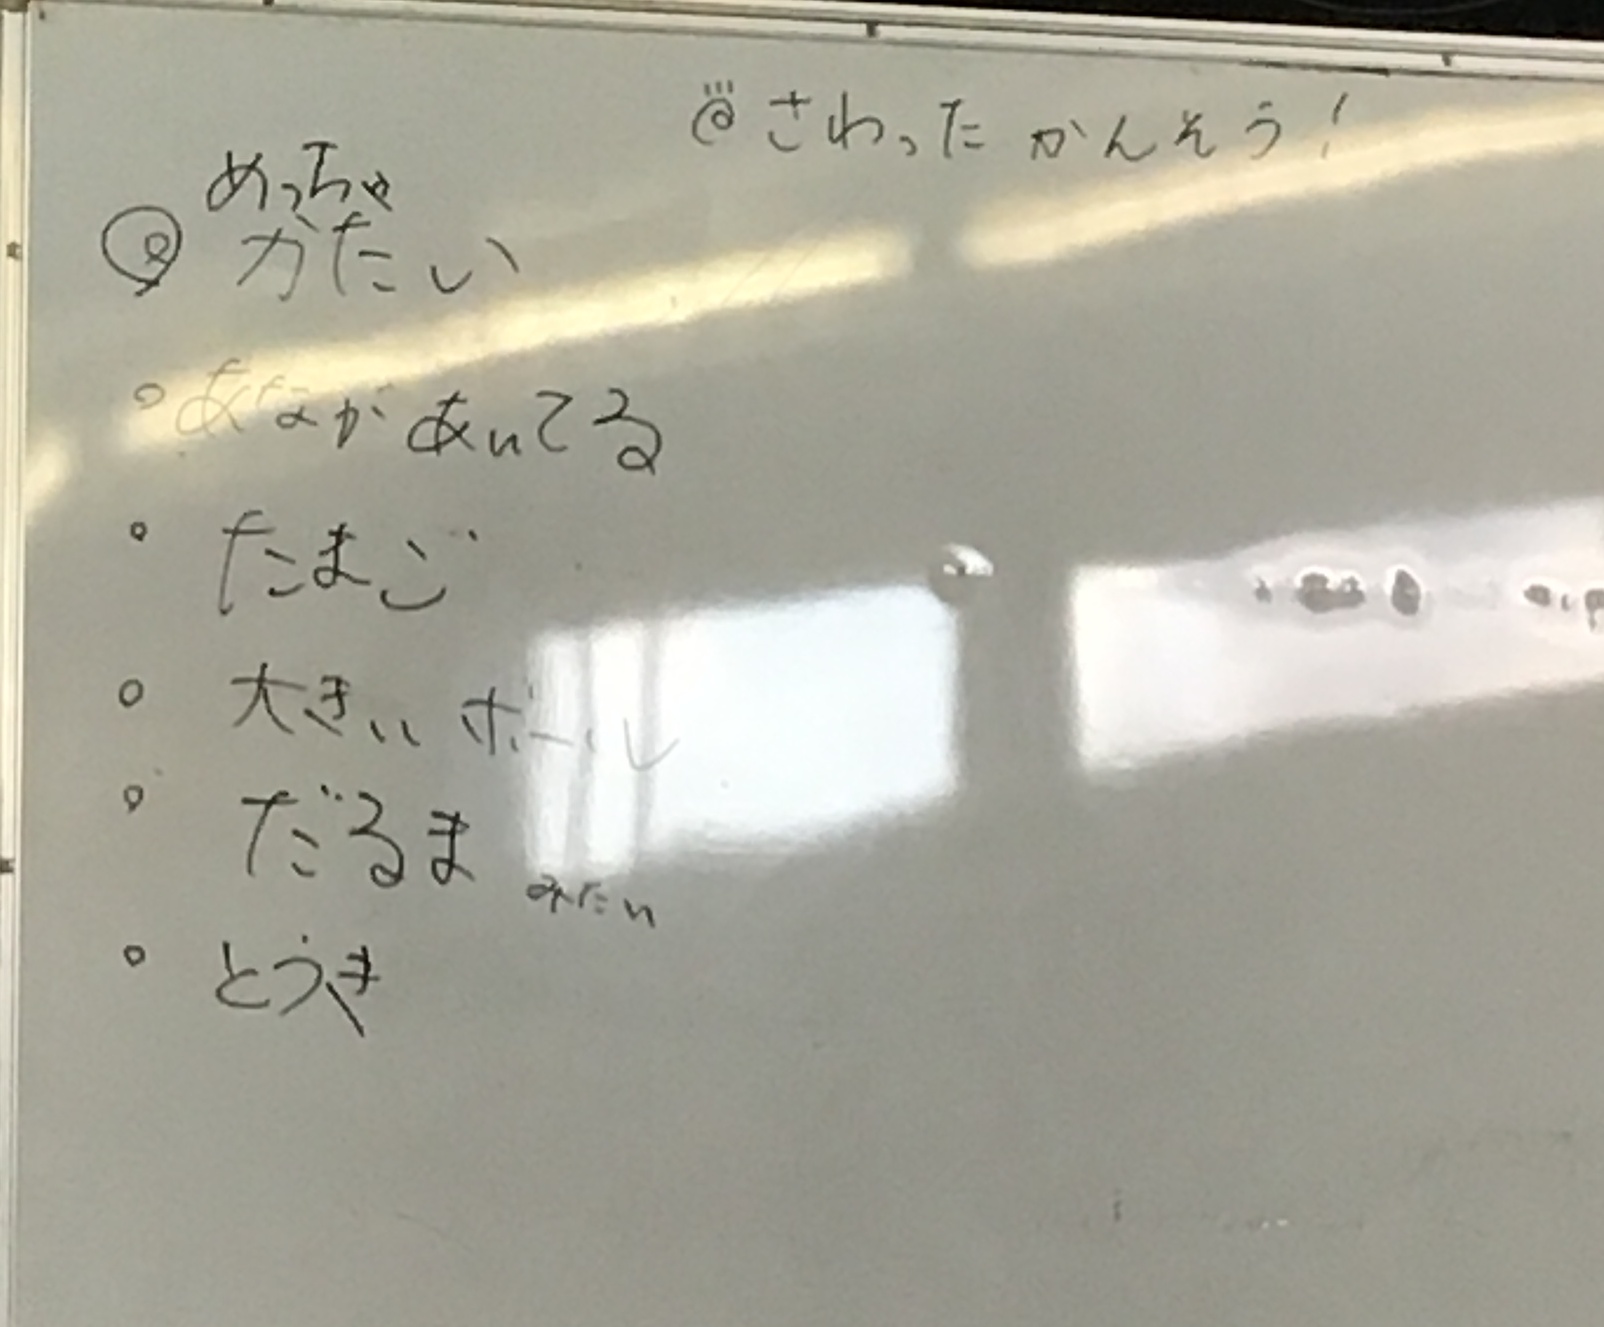 ◎さわった かんそう!
めっちゃ
◎ かたい
。あながあいてる
。たまご
。大きい ボール
。だるま みたい
。とうき